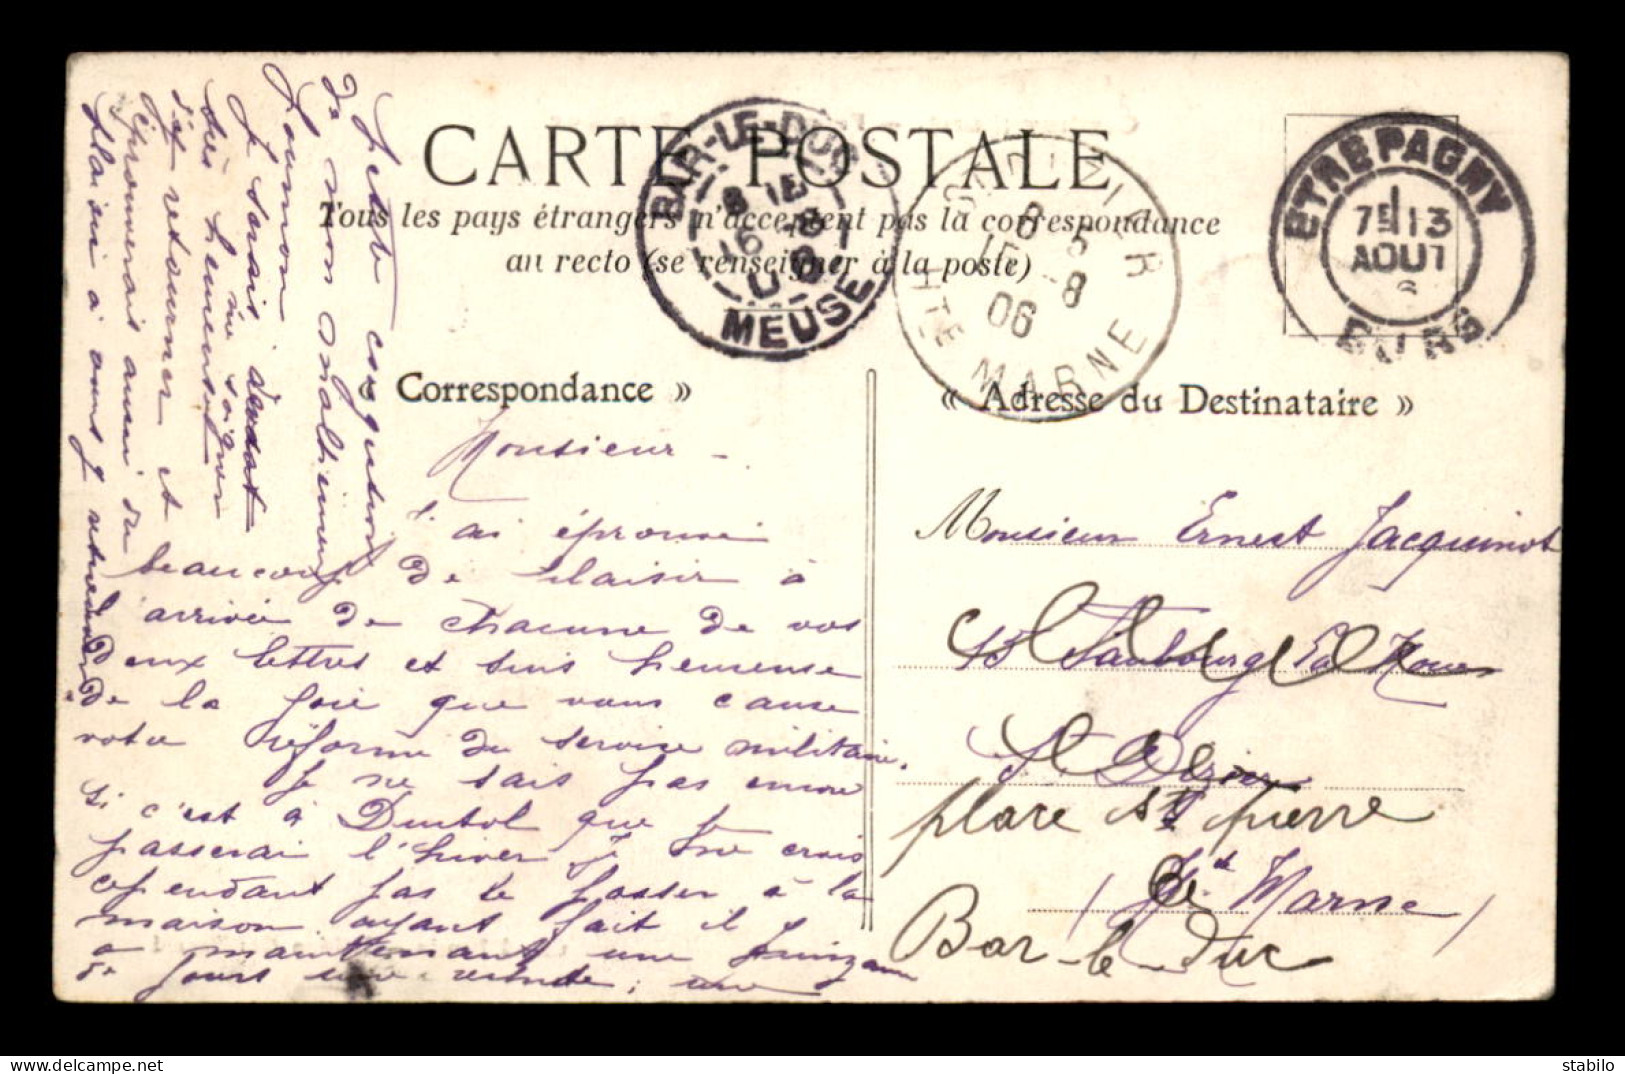 CARTE POSTALE
Tous les pays étrangers n'acceptent pas la correspondance
au recto (se renseigner à la poste)
BAR-LE-DUC
MEUSE
Sᵀ DIZIER
8 5
15 -8
06
HTE MARNE
ETREPAGNY
7E 13
AOUT
EURE
Correspondance »
« Adresse du Destinataire »
Monsieur -
J'ai éprouvé
beaucoup de plaisir à
arrivée de chacune de vos
deux lettres et suis heureuse
de la joie que vous cause
votre réforme du service militaire.
Je ne sais pas encore
si c'est à que je
passerai l'hiver je ne crois
cependant pas le passer à la
maison ayant fait il y
a maintenant une quinzaine
de jours une une
Lettre
de mon
Poumon
Je serais
très heureuse
d'y retourner et
éprouverais aussi du
plaisir à vous y
Monsieur Ernest Jacquinot
Faubourg La Noue
St Dizier
place St Pierre
Hte Marne
Bar-le-Duc
delcampe.net
stabilo